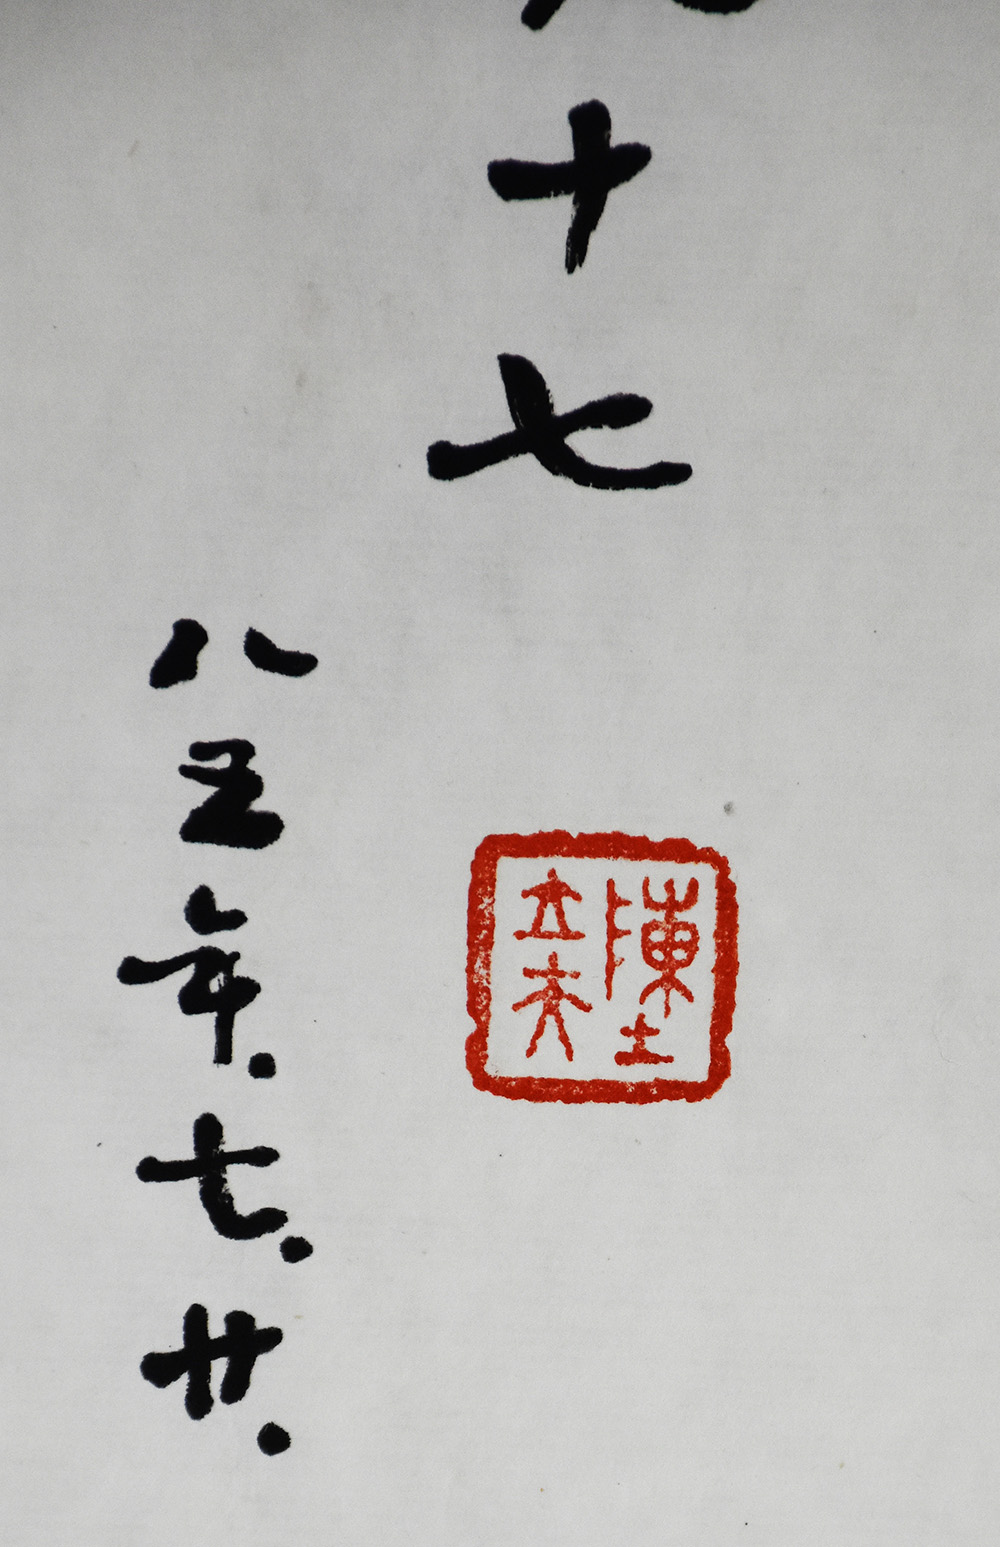 十七
八五年.七.廿.
陳立夫